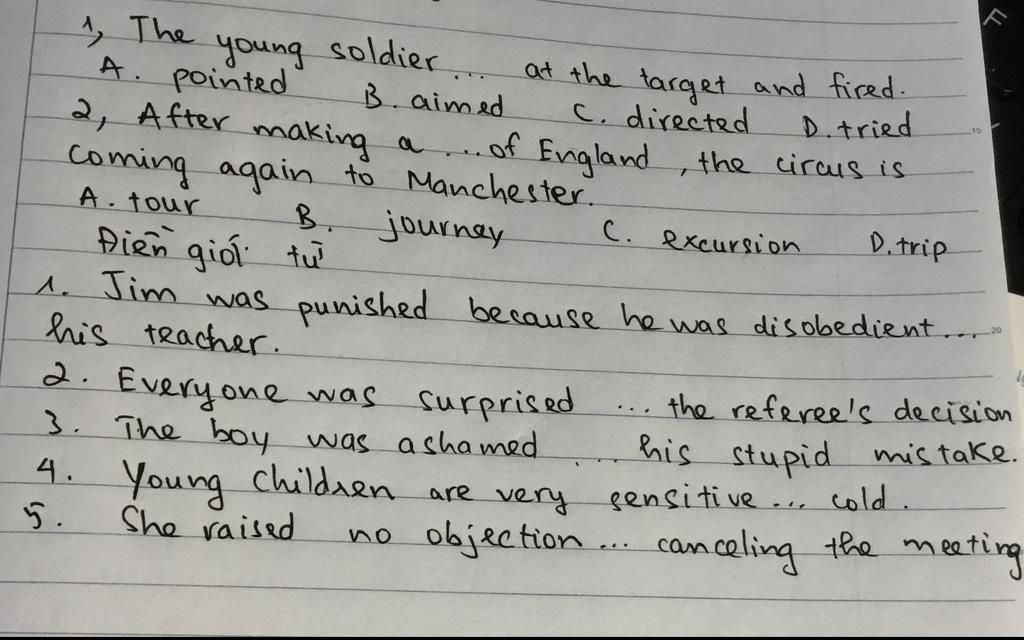 1, The young soldier ... at the target and fired.
A. pointed B. aimed C. directed D. tried
2, After making a ... of England, the circus is
coming again to Manchester.
A. tour B. journey C. excursion D. trip
Điền giới từ
1. Jim was punished because he was disobedient ...
his teacher.
2. Everyone was surprised ... the referee's decision
3. The boy was ashamed ... his stupid mistake.
4. Young children are very sensitive ... cold.
5. She raised no objection ... canceling the meeting